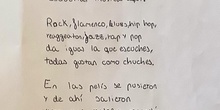 Rock, flamenco, blues, hip hop,
reuggeaton, jazz, rap y pop
da igual la que escuches,
todas gustan como chuches.
En las polis se pusieron
y de ahí salieron